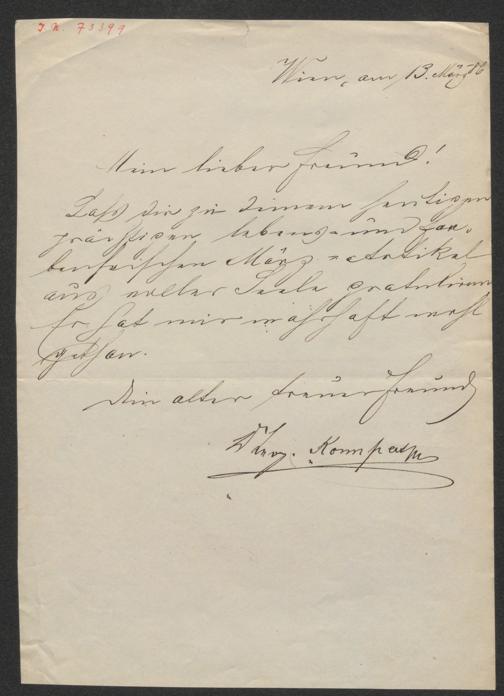 I.N. 75399
Wien, am 13. März 86
Mein lieber Freund!
Laß dir zu deinem heutigen
prächtigen lebens- und far-
benfrischen März-Artikel
aus voller Seele gratuliren
Er hat mir wahrhaft wohl
gethan.
Dein alter treuer Freund
Kompert